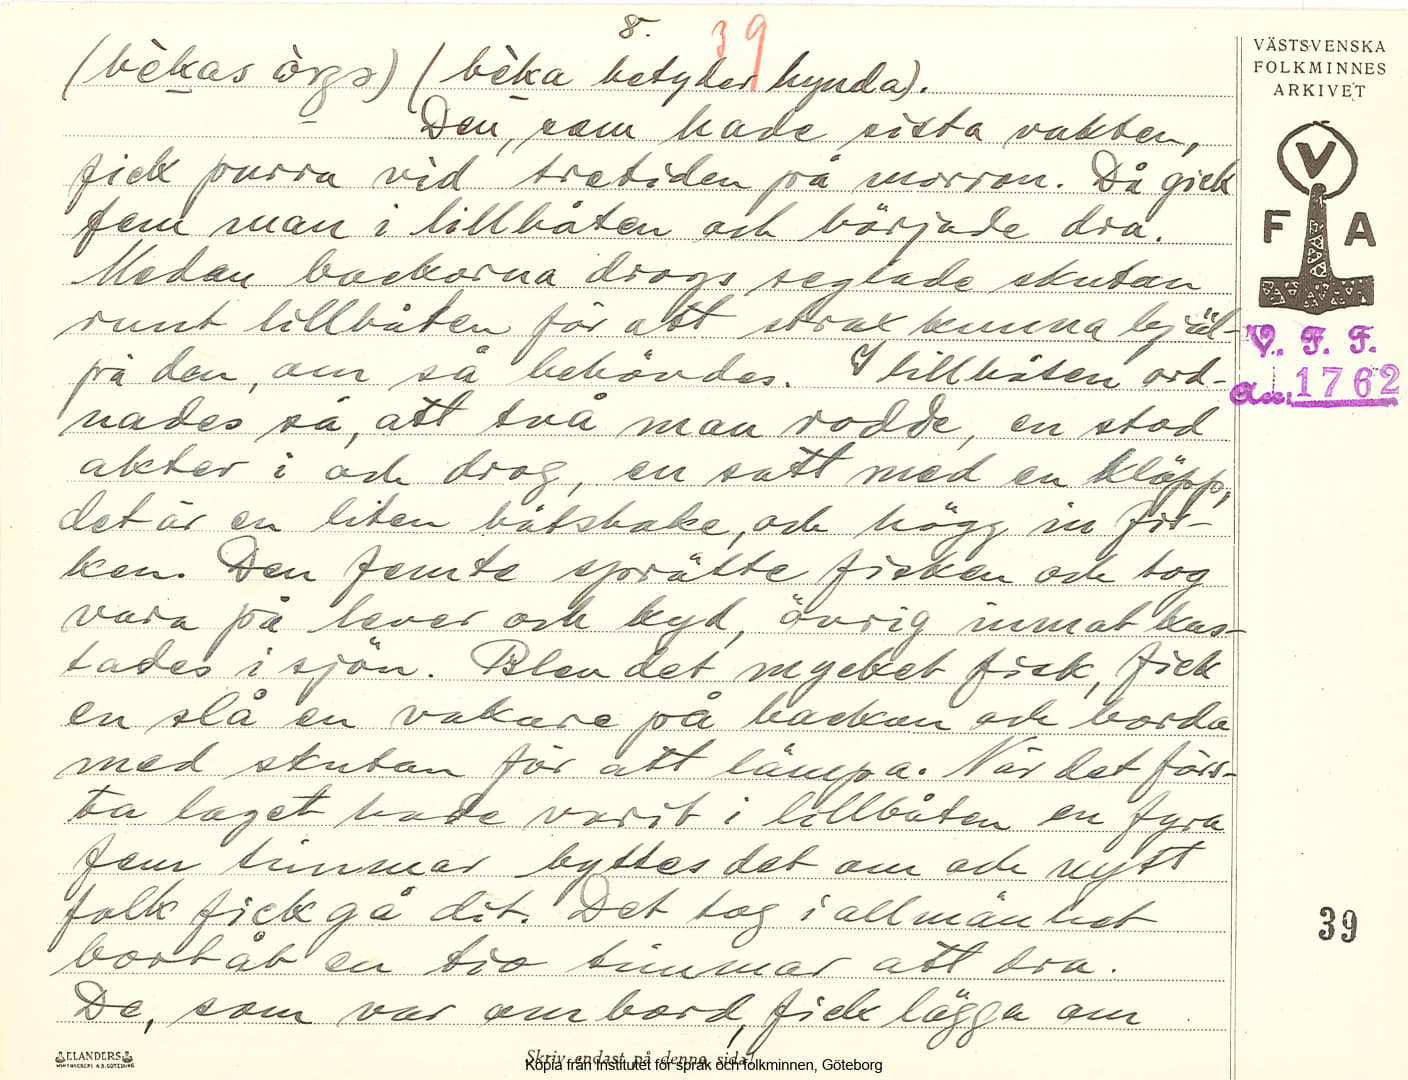 8. 39
(bèkas òrgs) (bèka betyder hynda).
Den, som hade sista vakten,
fick purra vid tretiden på morron. Då gick
fem man i lillbåten och började dra.
Medan backorna drogs seglade skutan
runt lillbåten för att strax kunna hjäl-
pa den, om så behövdes. I lillbåten ord-
nades så, att två man rodde, en stod
akter i och drog, en satt med en kläpp,
det är en liten båtshake, och högg in fis-
ken. Den femte sprätte fisken och tog
vara på lever och kyd, övrig inmat kas-
tades i sjön. Blev det mycket fisk, fick
en slå en vakare på backan och borda
med skutan för att lämpa. När detförs-
ta laget hade varit i lillbåten en fyra
fem timmar byttes det om och nytt
folk fick gå dit. Det tog i allmänhet
bortåt en tio timmar att dra.
De, som var ombord, fick lägga om
VÄSTSVENSKA
FOLKMINNES
ARKIVET
V
F A
V. F. F.
Acc. 1762
39
ELANDERS
Skriv endast på denna sida!
Kopia från Institutet för språk och folkminnen, Göteborg